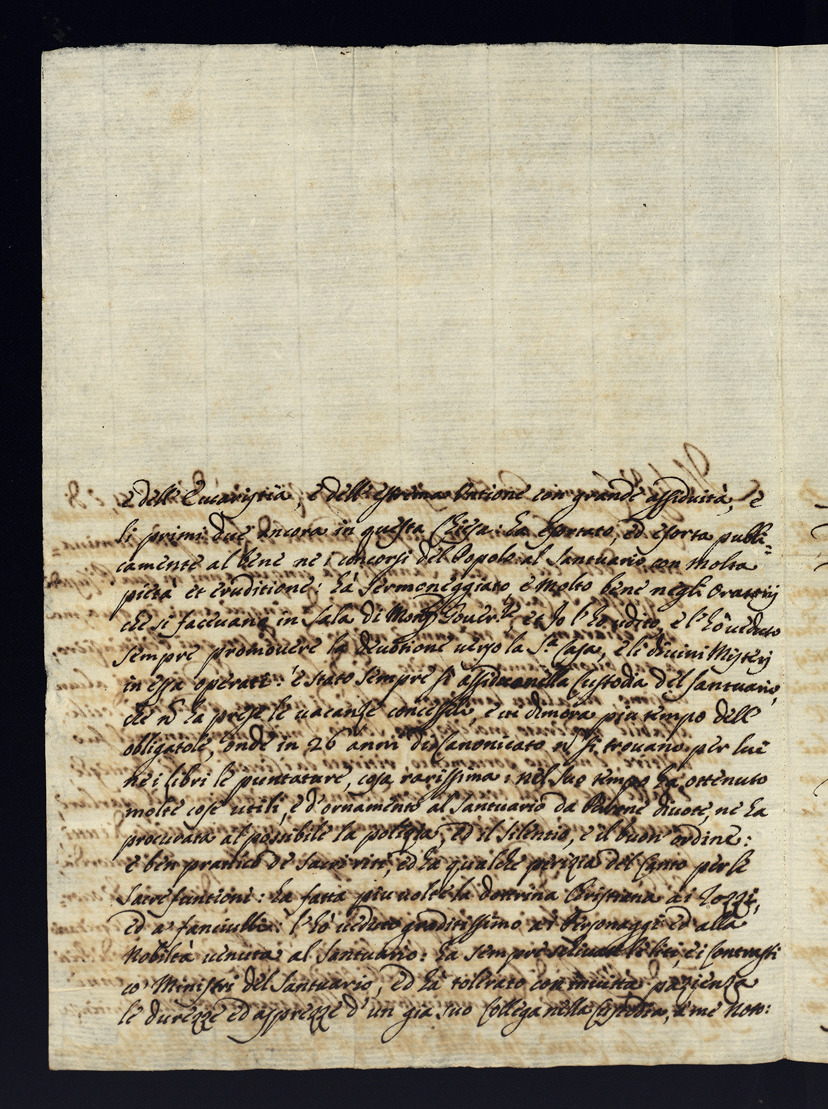 e dell'Eucaristia, e dell'estrema Untione con grande assiduità, e
li primi due ancora in questa Chiesa: ha esortato, ed esorta publi=
camente al bene ne i concorsi del Popolo al Santuario con molta
pietà et eruditione; hà sermoneggiato, e molto bene negli Oratorij
che si faceuano in sala di Mons. Gouer.re et Io l'hò udito, e l'hò ueduto
sempre promouere la deuotione uerso la S.ta Casa, e li diuini Misterj
in essa operati: è stato sempre sì assiduo nella Custodia del Santuario,
che nõ ha prese le uacanze concesseli, e ui dimora più tempo dell'
obligatole, onde in 26 anni di Canonicato nõ si trouano per lui
ne i libri le puntature, cosa rarissima: nel suo tempo hà ottenuto
molte cose utili, e d'ornamento al Santuario da Persone diuote, ne ha
procurata al possibile la polizia, ed il silentio, e il buon ordine:
è ben pratico de sacri riti, ed hà qualche perizia del Canto per le
sacre funtioni: ha fatta più uolte la dottrina Christiana ai rozzi,
ed a' fanciulli: l'hò ueduto graditissimo ai Personaggi ed alla
Nobiltà uenuta al Santuario: ha sempre le liti, e i Contrasti
co' Ministri del Santuario, ed hà tolerato con inuitta pazienza
le durezze ed asprezze d'un già suo Collega nella Custodia, à me noto: